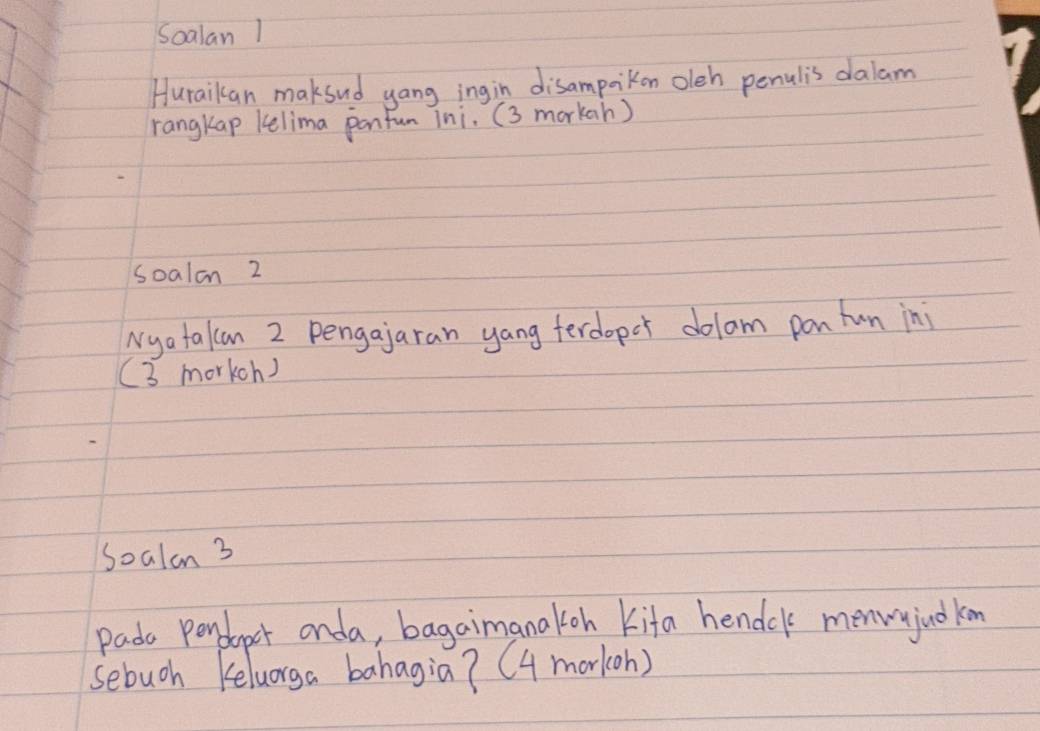 Soalan 1
Huraikan maksud yang ingin disampaikan oleh penulis dalam
rangkap kelima pantun ini. (3 markah)
-
Soalan 2
Nyatakan 2 pengajaran yang terdapat dalam pantun ini
(3 markah)
-
Soalan 3
pada pendapat anda, bagaimanakah kita hendak menwujudkan
sebuah keluarga bahagia? (4 markah)